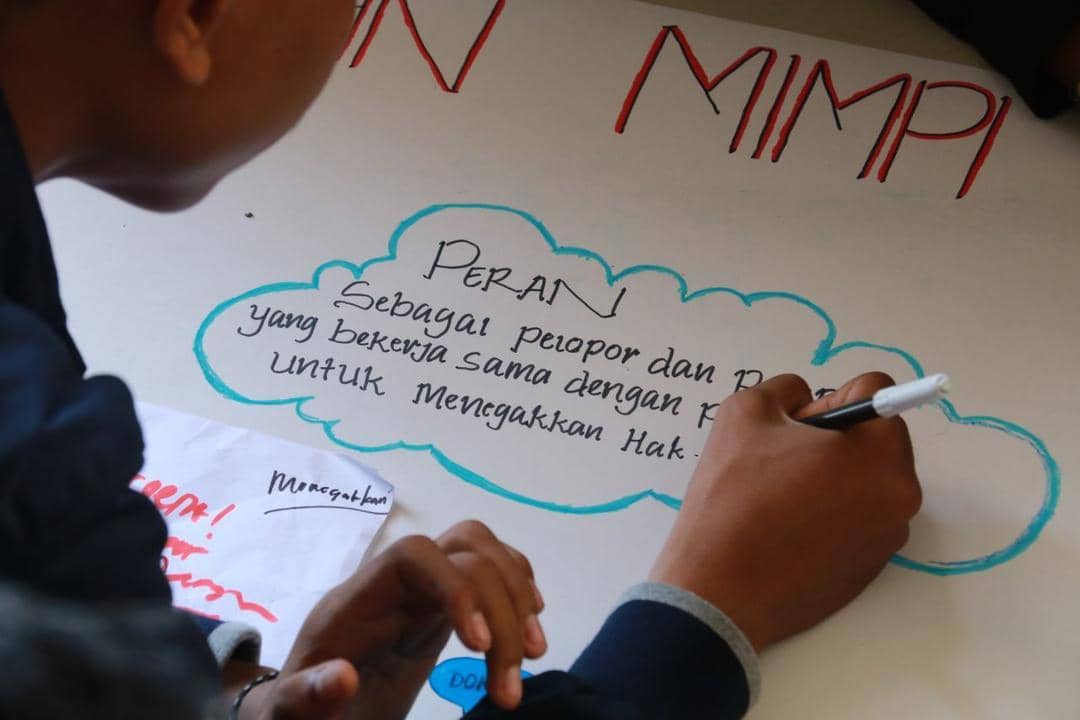 N MIMPI
PERAN
Sebagai pelopor dan
yang bekerja sama dengan
untuk Menegakkan Hak
Menegakkan